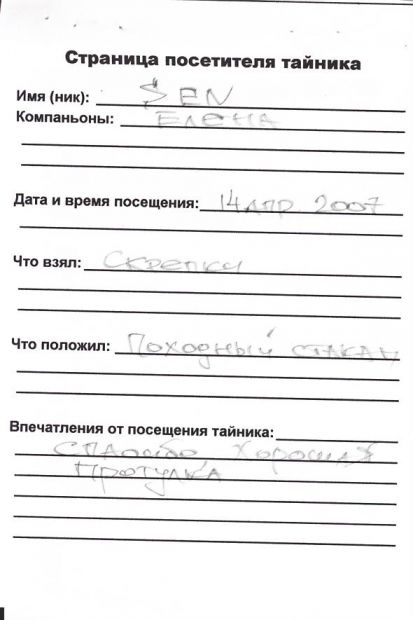 Страница посетителя тайника
Имя (ник): SEN
Компаньоны: ЕЛЕНА
Дата и время посещения: 14 апр 2007
Что взял: Скрепку
Что положил: Походный стакан
Впечатления от посещения тайника:
Спасибо Хорошая
Прогулка